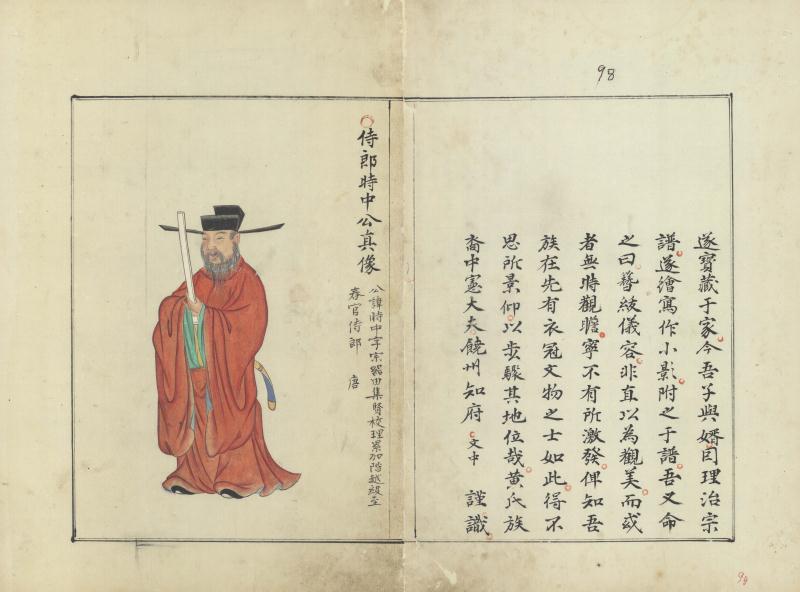 98
遂寶藏于家今吾子與婿同理治宗
譜遂繪寫作小影附之于譜吾又命
之曰簪紱儀容非直以為觀美而或
者無時觀瞻寧不有所激發俾知吾
族在先有衣冠文物之士如此得不
思所景仰以步驟其地位哉黃氏族
裔中憲大夫饒州知府文中 謹識
侍郎時中公真像
公諱時中字宗 由集賢校理累加階越級至
春官侍郎 唐
98